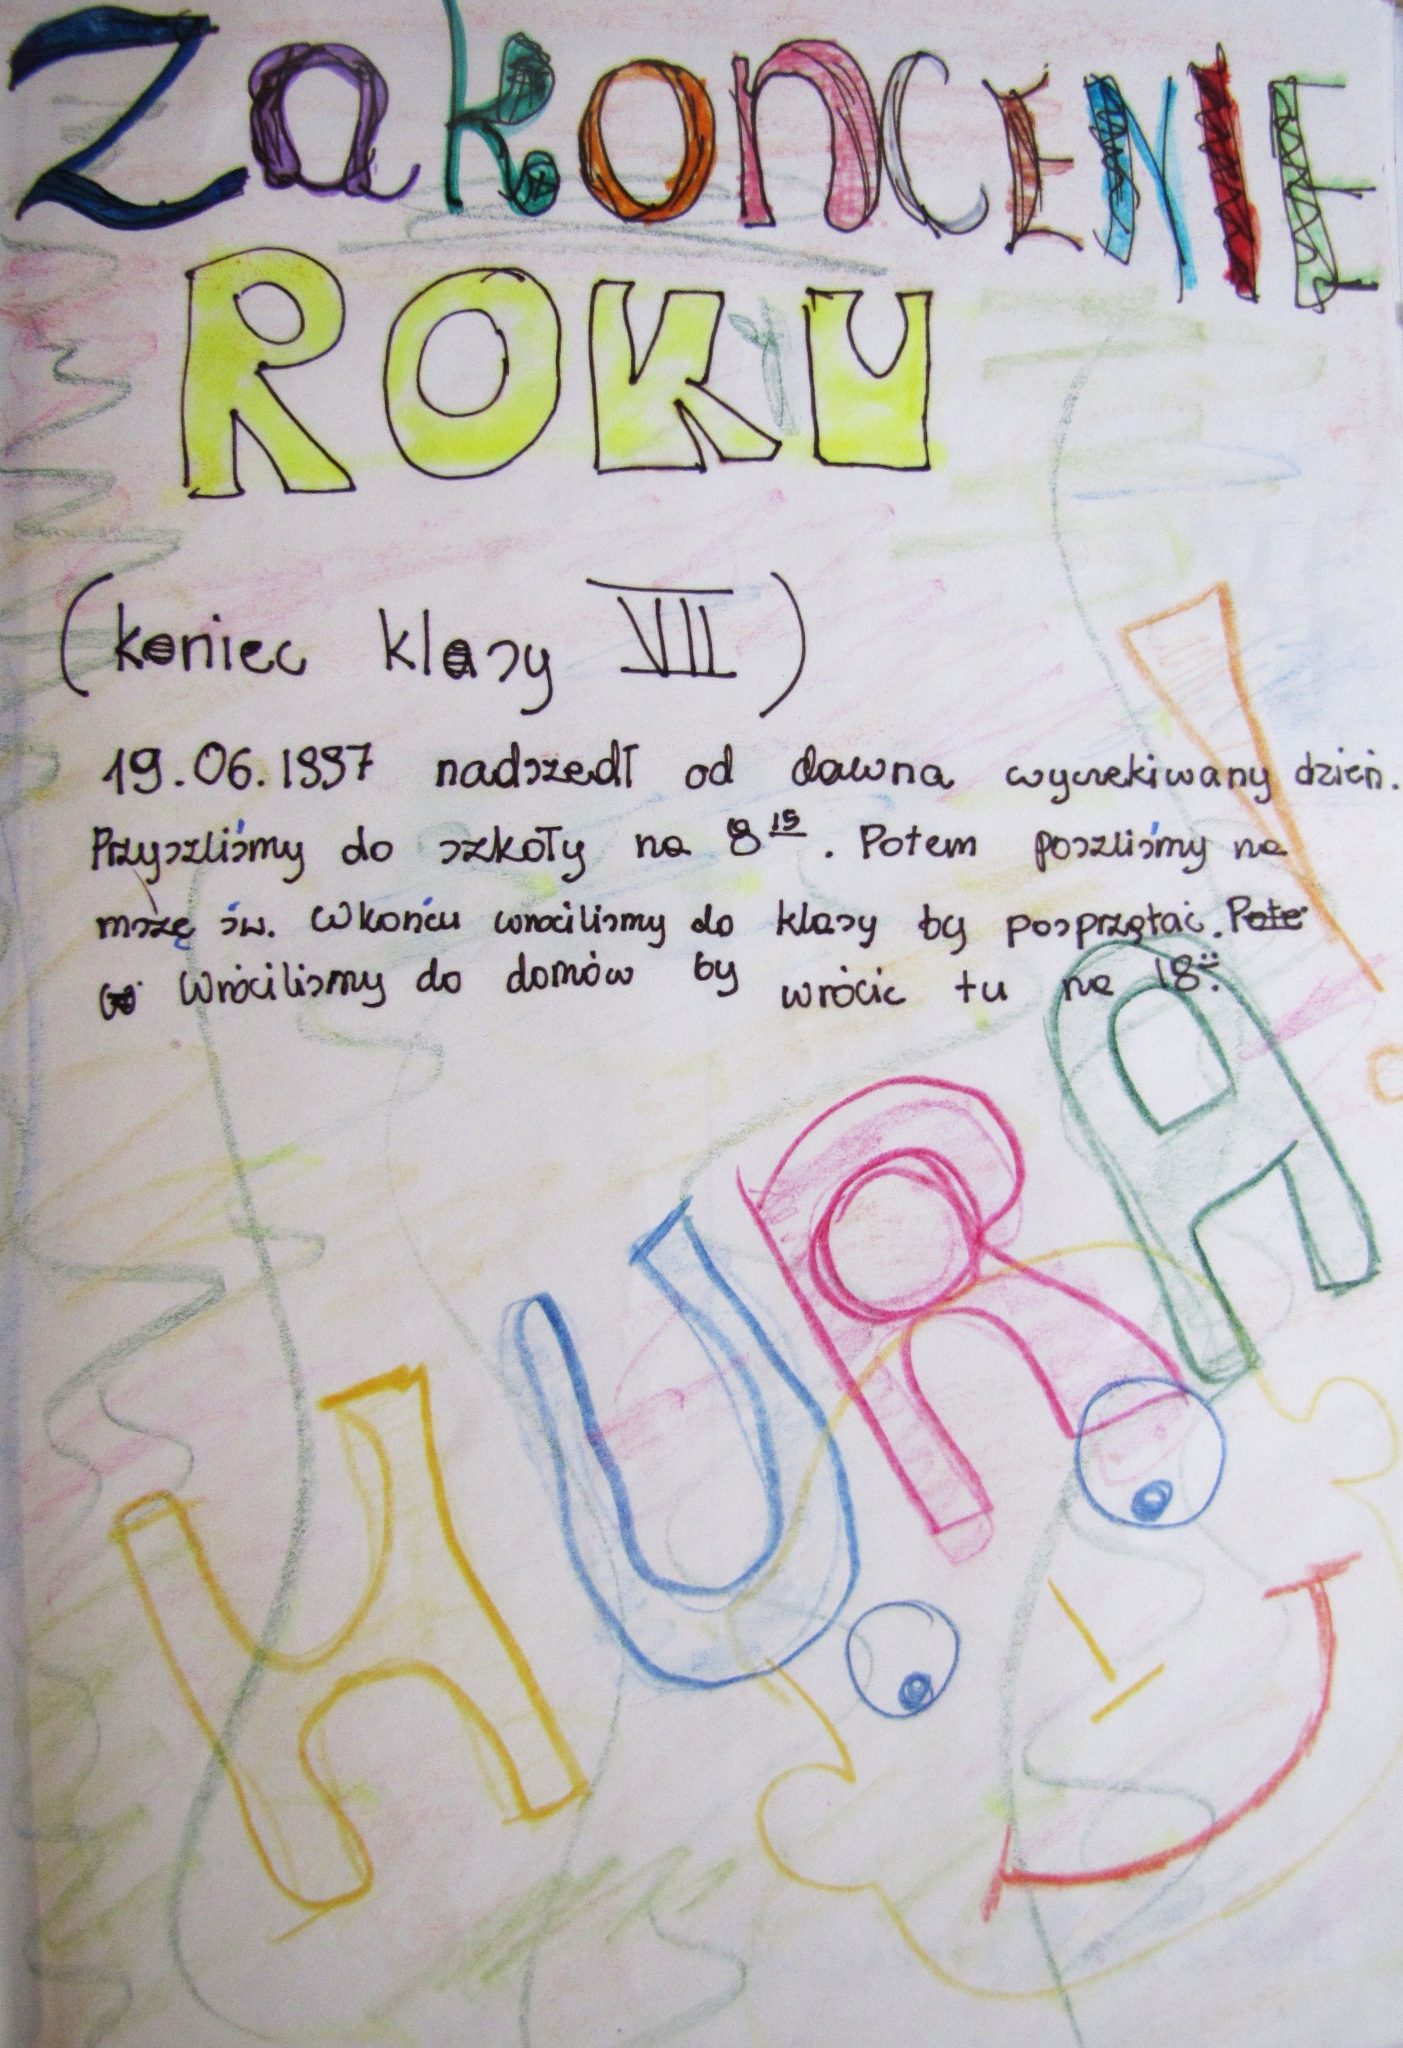 ZakoncENIE
ROKU
(koniec klasy VII)
19.06.1997 nadszedł od dawna wyczekiwany dzień.
Przyszliśmy do szkoły na 8 15. Potem poszliśmy na
mszę św. W końcu wrociliśmy do klasy by posprzątać. Pote
Wróciliśmy do domów by wrócic tu na 18:
HURA!